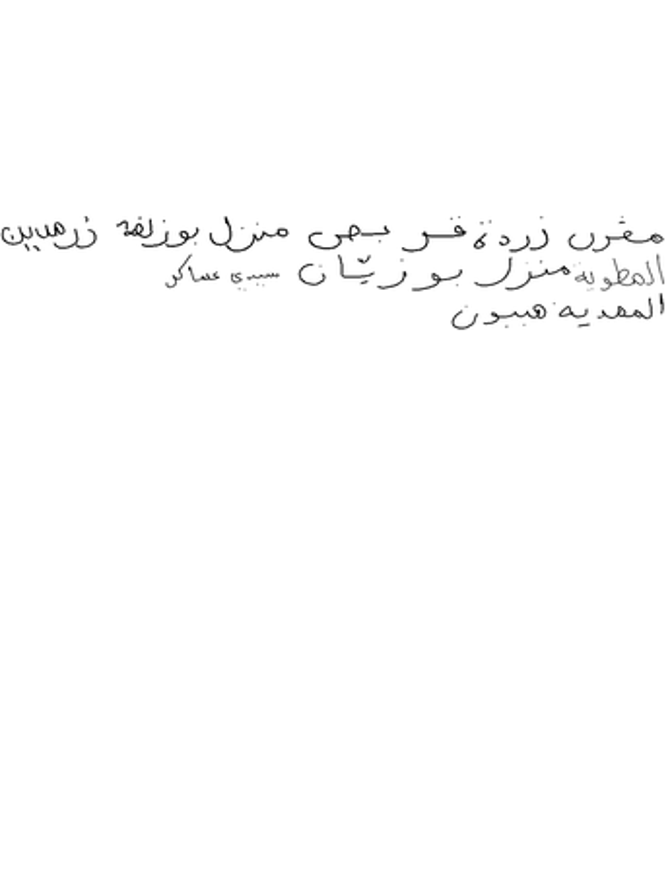 مقرن زردة قربص منزل بوزلفة زرمدين
المطوية منزل بوزيّان سيدي عساكر
المهدية هبيون